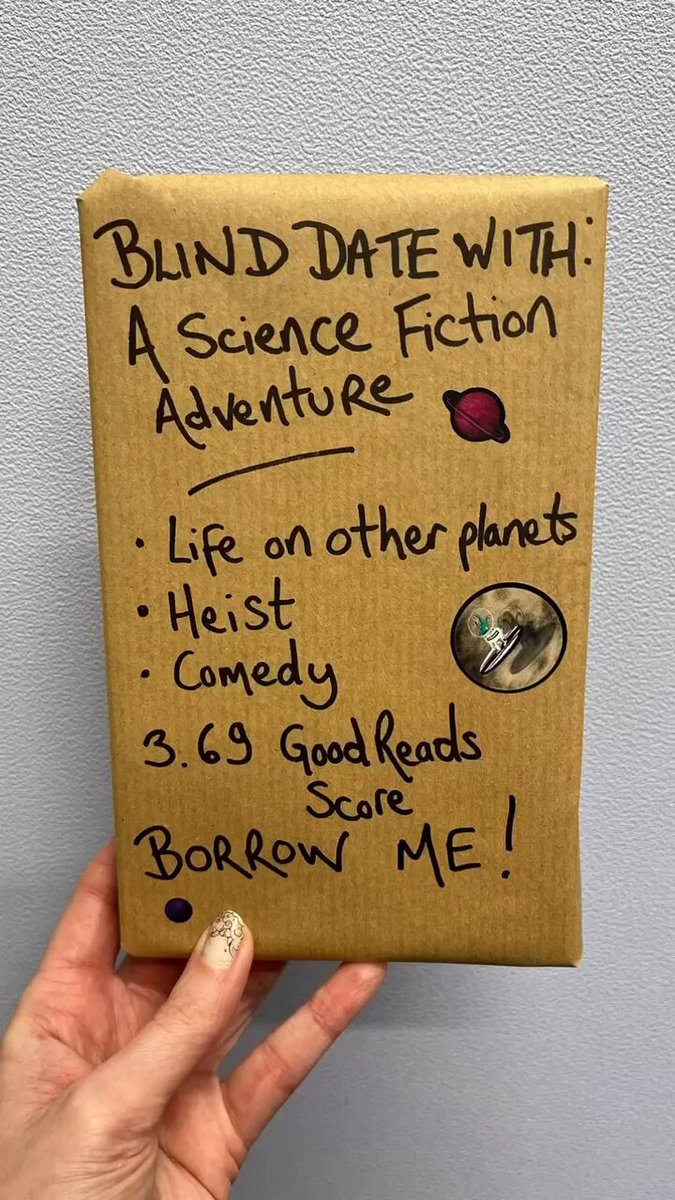 BLIND DATE WITH:
A Science Fiction
Adventure
• Life on other planets
• Heist
• Comedy
3.69 GoodReads
Score
BORROW ME!